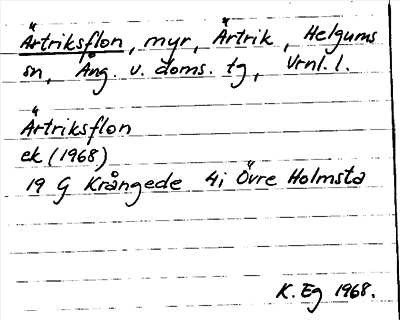 Ärtriksflon, myr, Ärtrik, Helgums
sn, Ång. v. doms. tg, Vrnl. l.
Ärtriksflon
ek (1968)
19 G Krångede 4i Övre Holmsta
K. Eg 1968.